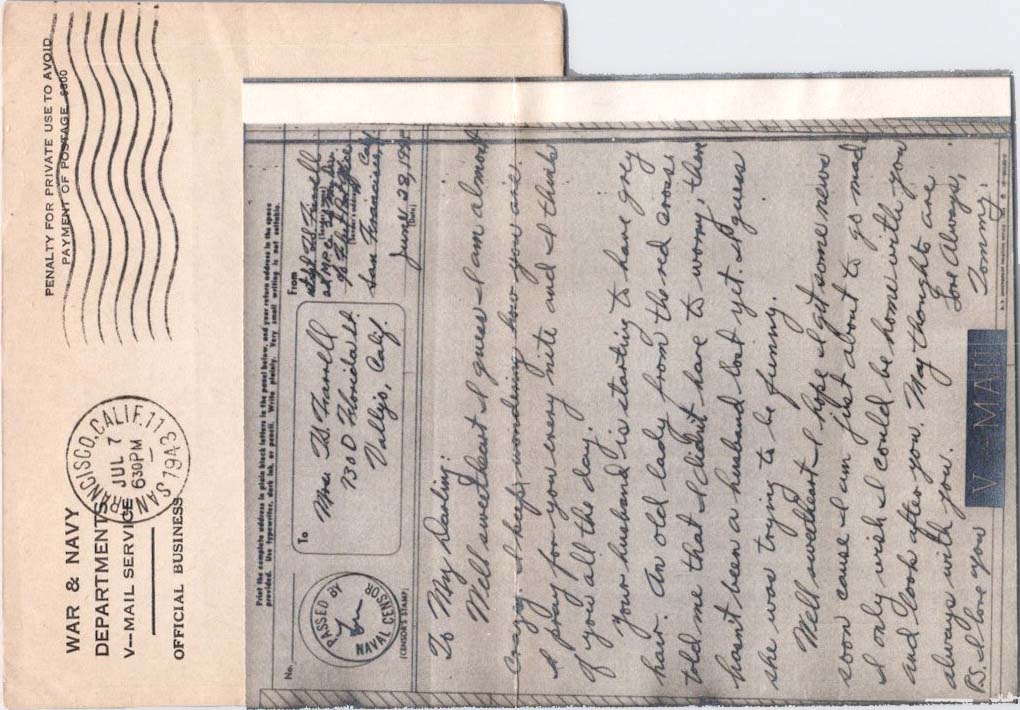 WAR & NAVY
DEPARTMENTS
V—MAIL SERVICE
OFFICIAL BUSINESS
SAN FRANCISCO, CALIF. 11
JUL 7
630PM
1943
PENALTY FOR PRIVATE USE TO AVOID
PAYMENT OF POSTAGE, $300
Print the complete address in plain block letters in the panel below, and your return address in the space
provided. Use typewriter, dark ink, or pencil. Write plainly. Very small writing is not suitable.
No.
PASSED BY
NAVAL CENSOR
(CENSOR'S STAMP)
To
Mrs. Farrell
730 D Florida St
Vallejo, Calif.
From
(Sender's name)
(Sender's address)
San Francisco, Cal
June 28, 19
(Date)
To My Darling:
Well sweetheart I guess I am almost
crazy. I keep wondering how you are.
I pray for you every nite and I think
of you all the day.
Your husband is starting to have grey
hair. An old lady from the red cross
told me that I didn't have to worry, there
hasn't been a husband lost yet. I guess
she was trying to be funny.
Well sweetheart I hope I get some news
soon cause I am just about to go mad
I only wish I could be home with you
and look after you. My thoughts are
always with you.
Love Always,
Tommy.
PS. I love you
V···—MAIL